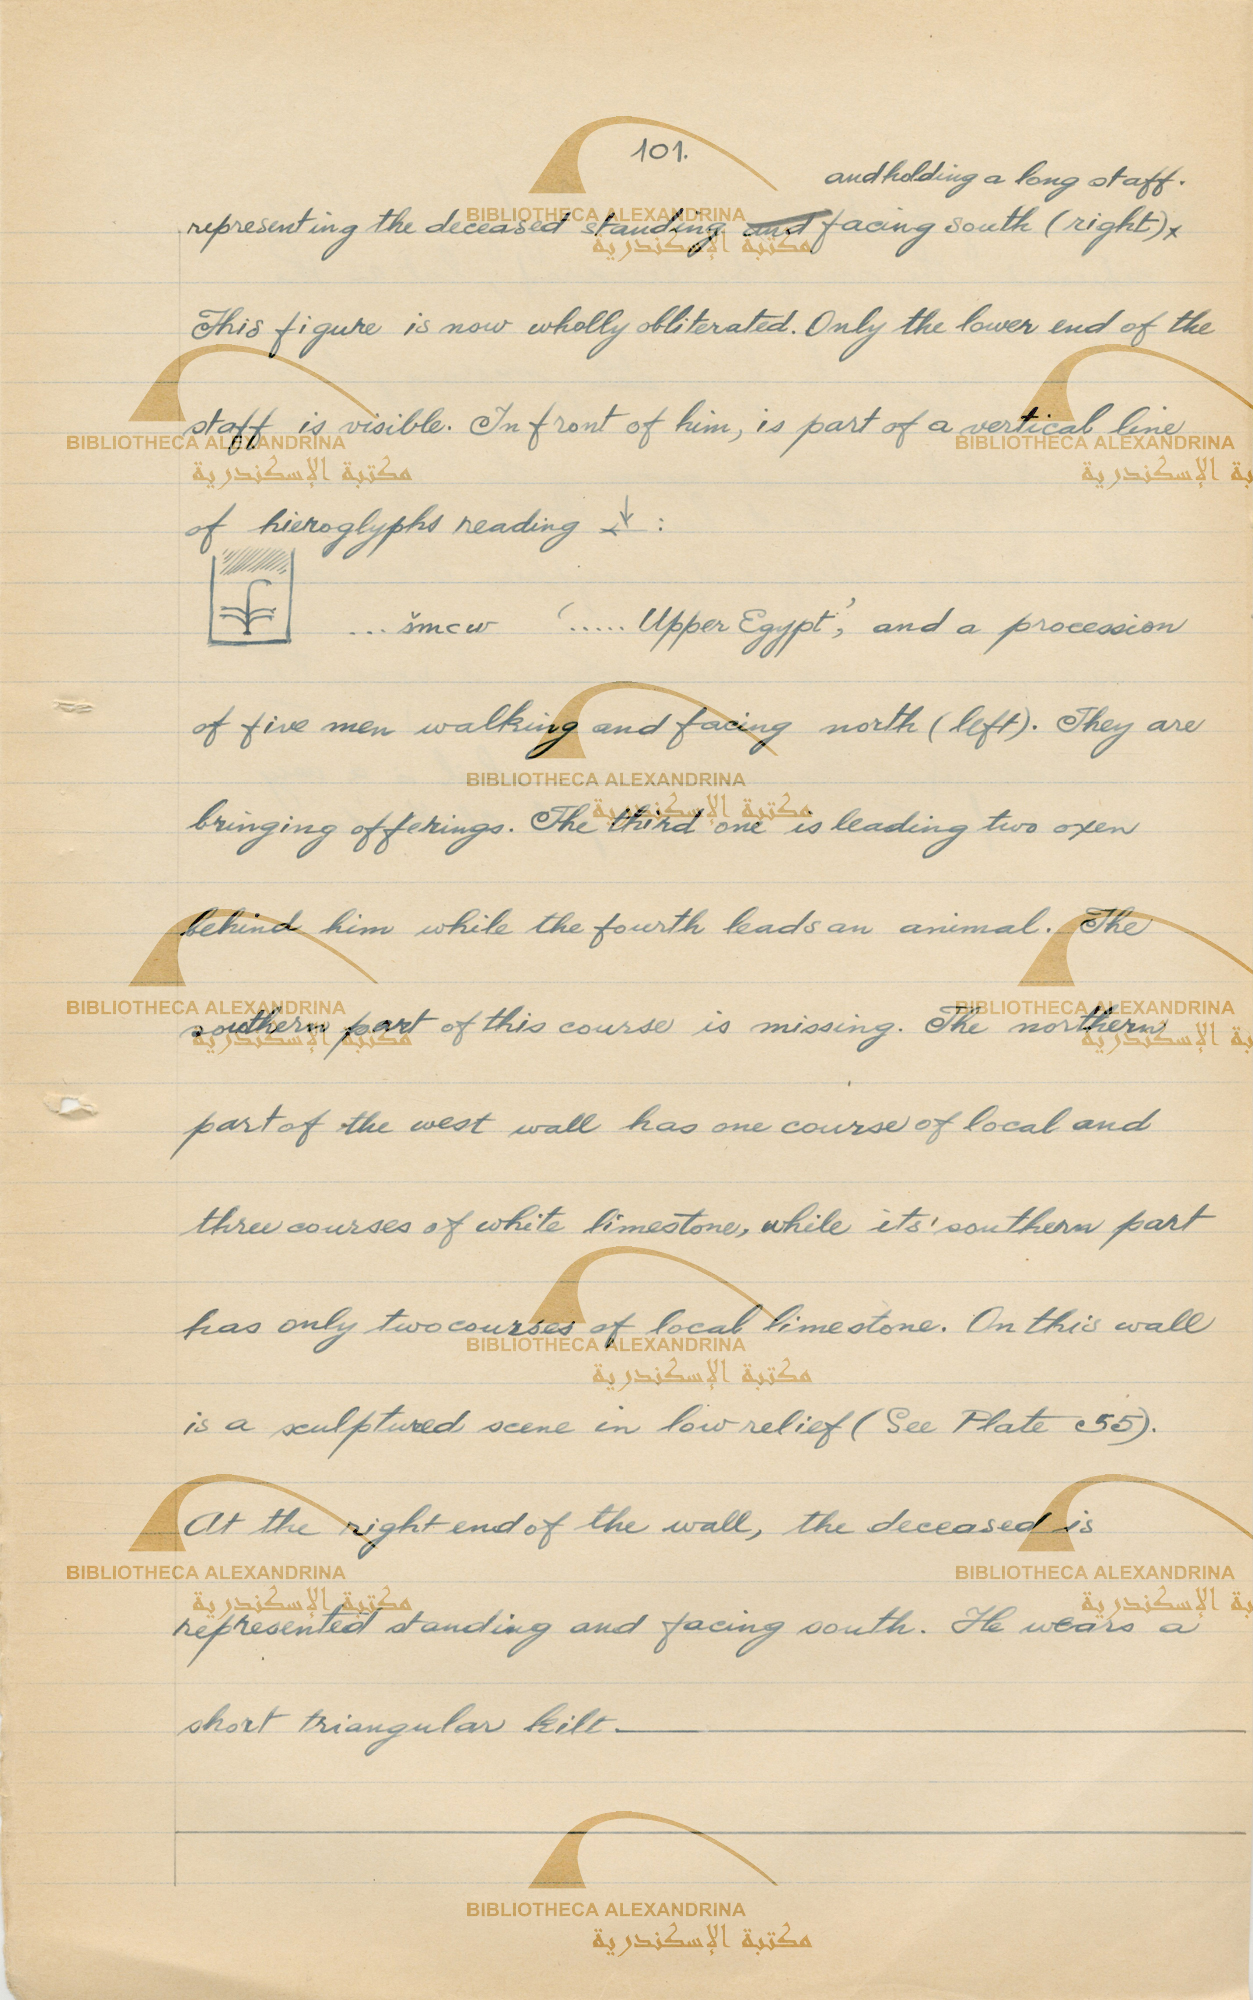 101.
and holding a long staff.
representing the deceased standing and facing south (right)x
This figure is now wholly obliterated. Only the lower end of the
staff is visible. In front of him, is part of a vertical line
of hieroglyphs reading ↓ :
... šmcw '..... Upper Egypt', and a procession
of five men walking and facing north (left). They are
bringing offerings. The third one is leading two oxen
behind him while the fourth leads an animal. The
southern part of this course is missing. The northern
part of the west wall has one course of local and
three courses of white limestone, while its' southern part
has only two courses of local limestone. On this wall
is a sculptured scene in low relief (See Plate 55).
At the right end of the wall, the deceased is
represented standing and facing south. He wears a
short triangular kilt.
BIBLIOTHECA ALEXANDRINA
مكتبة الإسكندرية